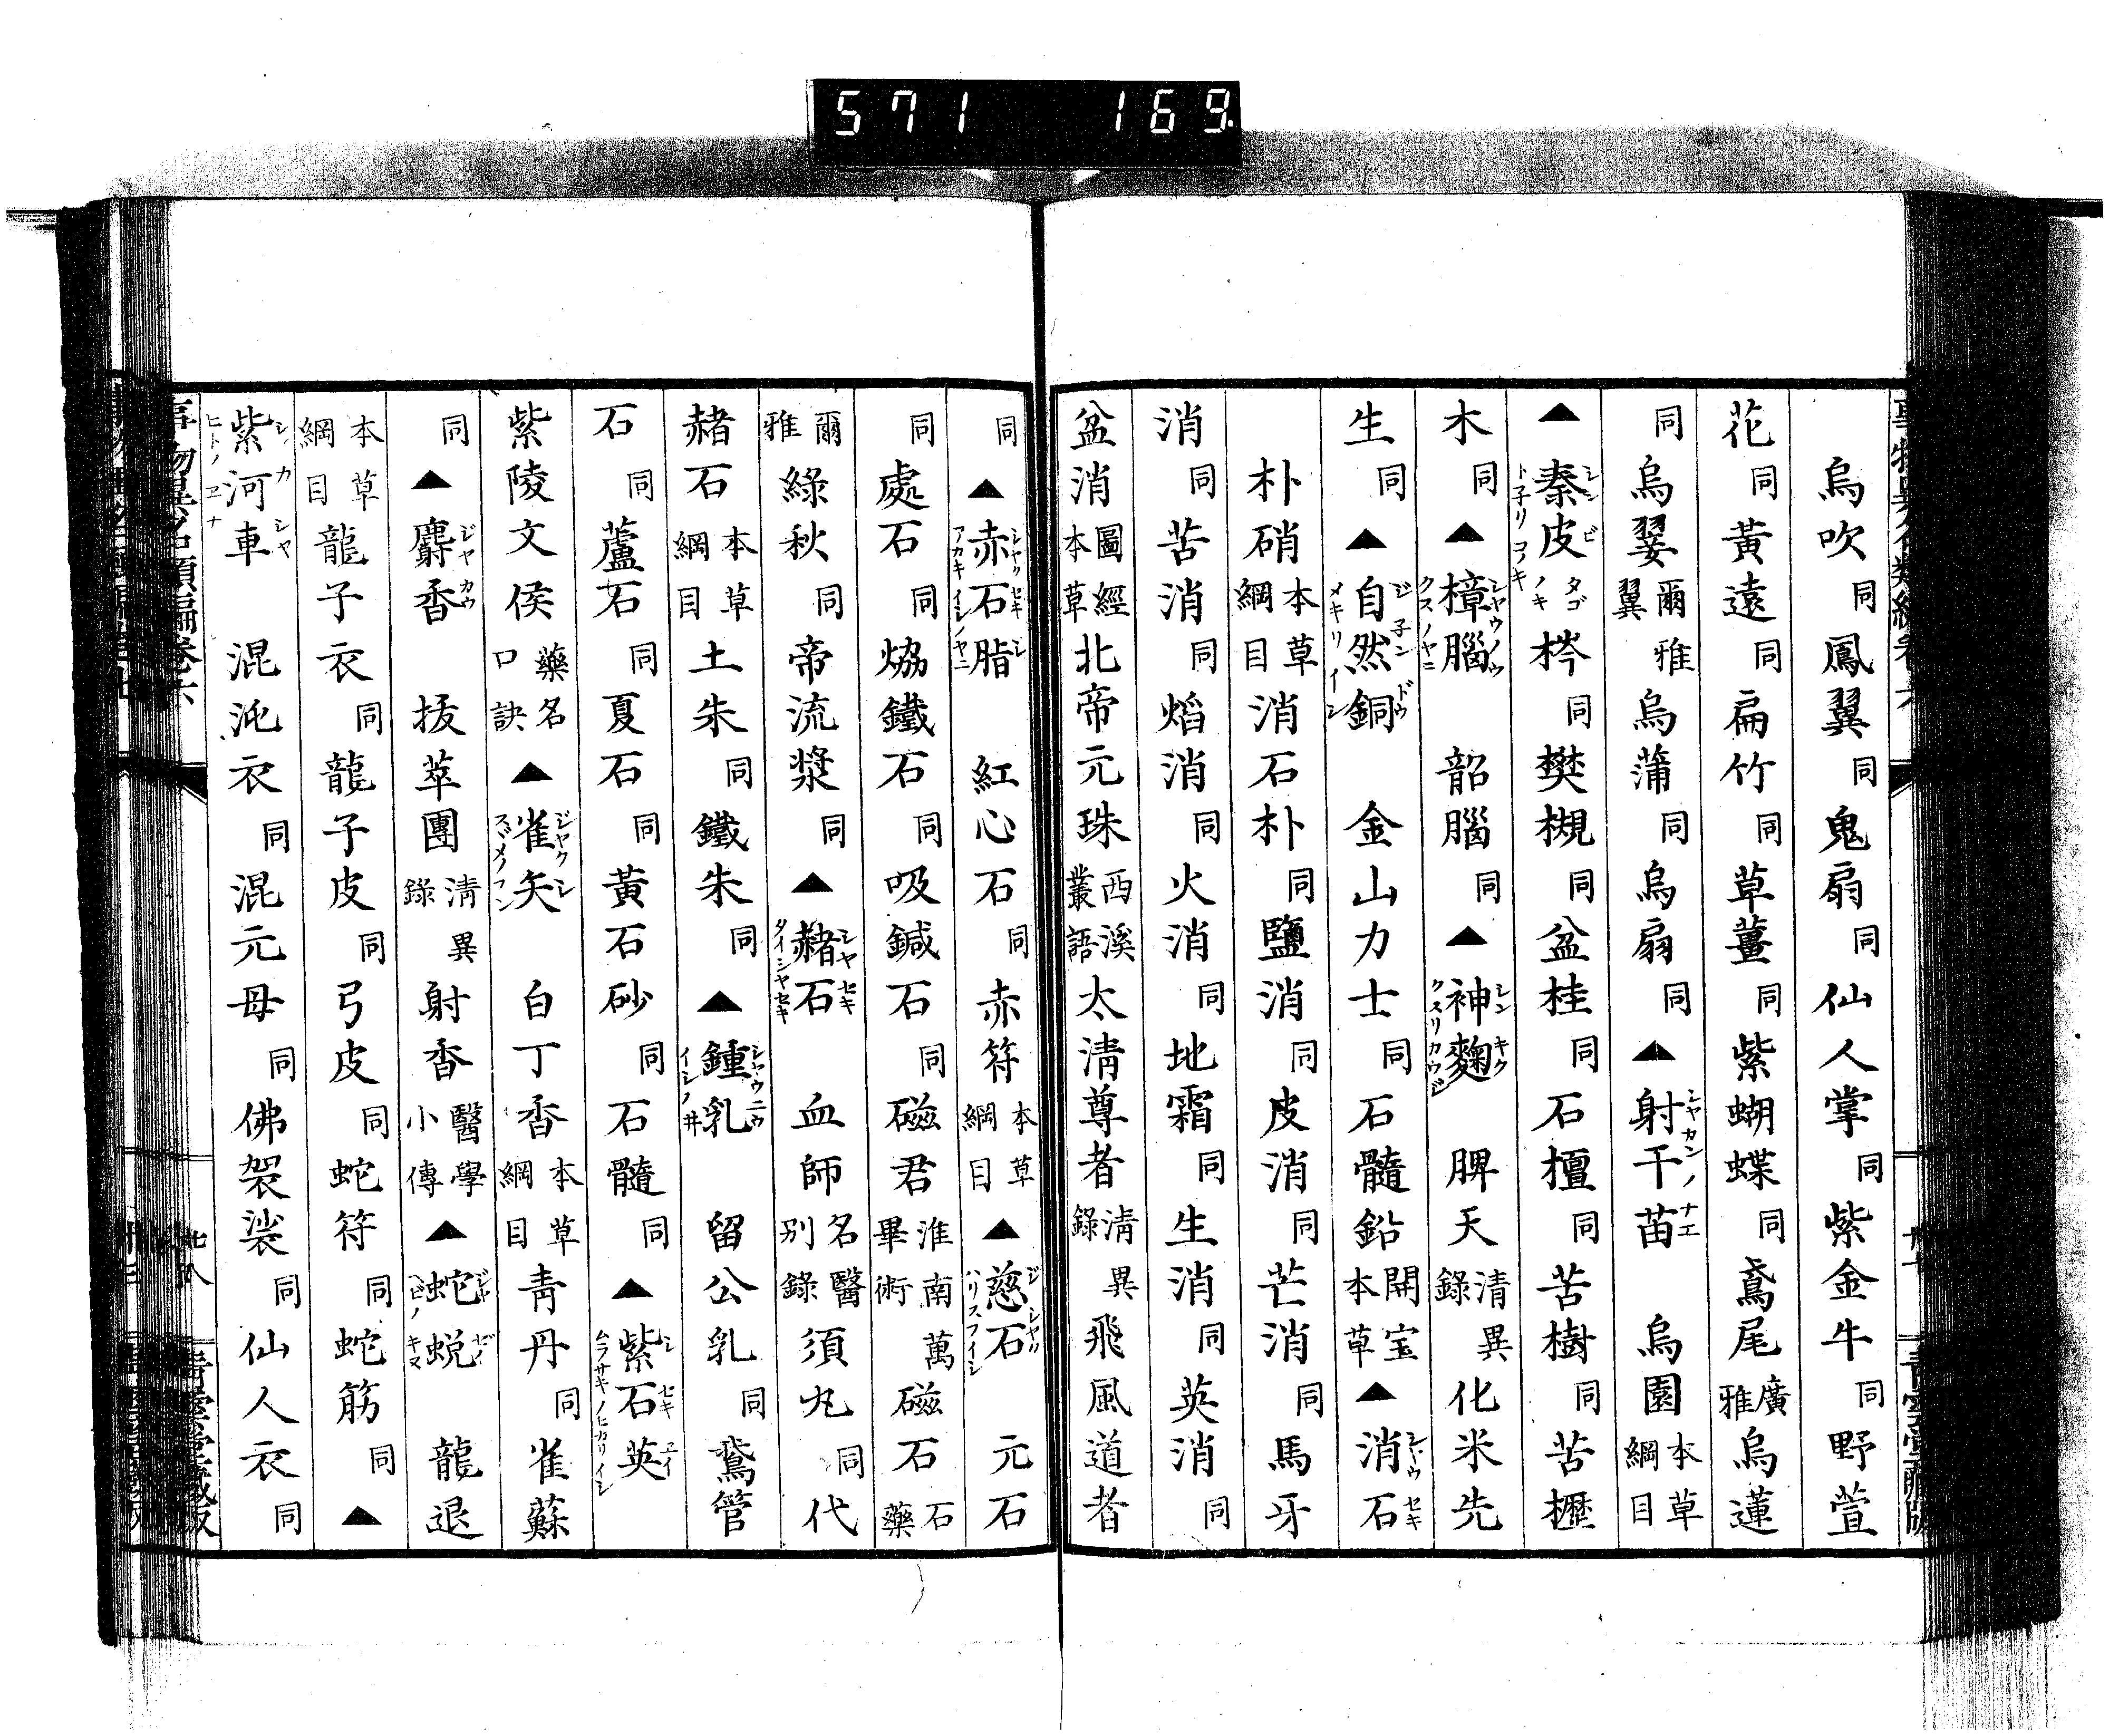 571 169.
烏吹同鳳翼同鬼扇同仙人掌同紫金牛同野萱
花同黃遠同扁竹同草薑同紫蝴蝶同鳶尾廣雅烏蓮
同烏翣爾雅翼烏蒲同烏扇同▲射干苗シヤカンノナエ烏園本草綱目
▲秦皮シンビトネリコノキタゴノキ梣同樊槻同盆桂同石檀同苦樹同苦櫪
木同▲樟腦シヤウノウクスノヤニ韶腦同▲神麴シンキククスリカウジ脾天清異錄化米先
生同▲自然銅ジ子ンドウメキリイシ金山力士同石髓鉛開宝本草▲消石シヤウセキ
朴硝本草綱目消石朴同鹽消同皮消同芒消同馬牙
消同苦消同焰消同火消同地霜同生消同英消同
盆消圖經本草北帝元珠西溪叢語太清尊者清異錄飛風道者
同▲赤石脂シヤクセキシアカキイシノヤニ紅心石同赤符本草綱目▲慈石ジシヤクハリスフイシ元石
同處石同熁鐵石同吸鍼石同磁君淮南萬畢術磁石石藥
爾雅綠秋同帝流漿同▲赭石シヤセキタイシヤセキ血師名醫別錄須丸同代
赭石本草綱目土朱同鐵朱同▲鍾乳シヤウニウイシノ井留公乳同鵞管
石同蘆石同夏石同黃石砂同石髓同▲紫石英シセキエイムラサキノヒカリイシ
紫陵文侯藥名口訣▲雀矢ジヤクシスヾメノフン白丁香本草綱目青丹同雀蘇
同▲麝香ジヤカウ拔萃團清異錄射香醫學小傳▲蛇蛻ジヤゼイヘビノキヌ龍退
本草綱目龍子衣同龍子皮同弓皮同蛇符同蛇筋同▲
紫河車シカシヤヒトノヱナ混沌衣同混元母同佛袈裟同仙人衣同
事物異名類編卷六